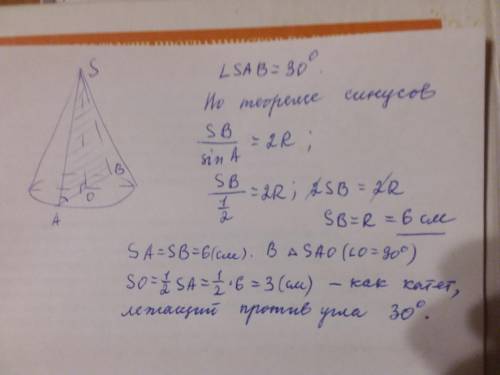 S
A
O
B
∠SAB = 30°.
По теореме синусов
SB/sin A = 2R ;
SB/(1/2) = 2R ; 2SB = 2R
SB = R = 6 см
SA = SB = 6 (см). В △ SAO (∠O = 90°)
SO = 1/2 SA = 1/2 · 6 = 3 (см) – как катет,
лежащий против угла 30°.